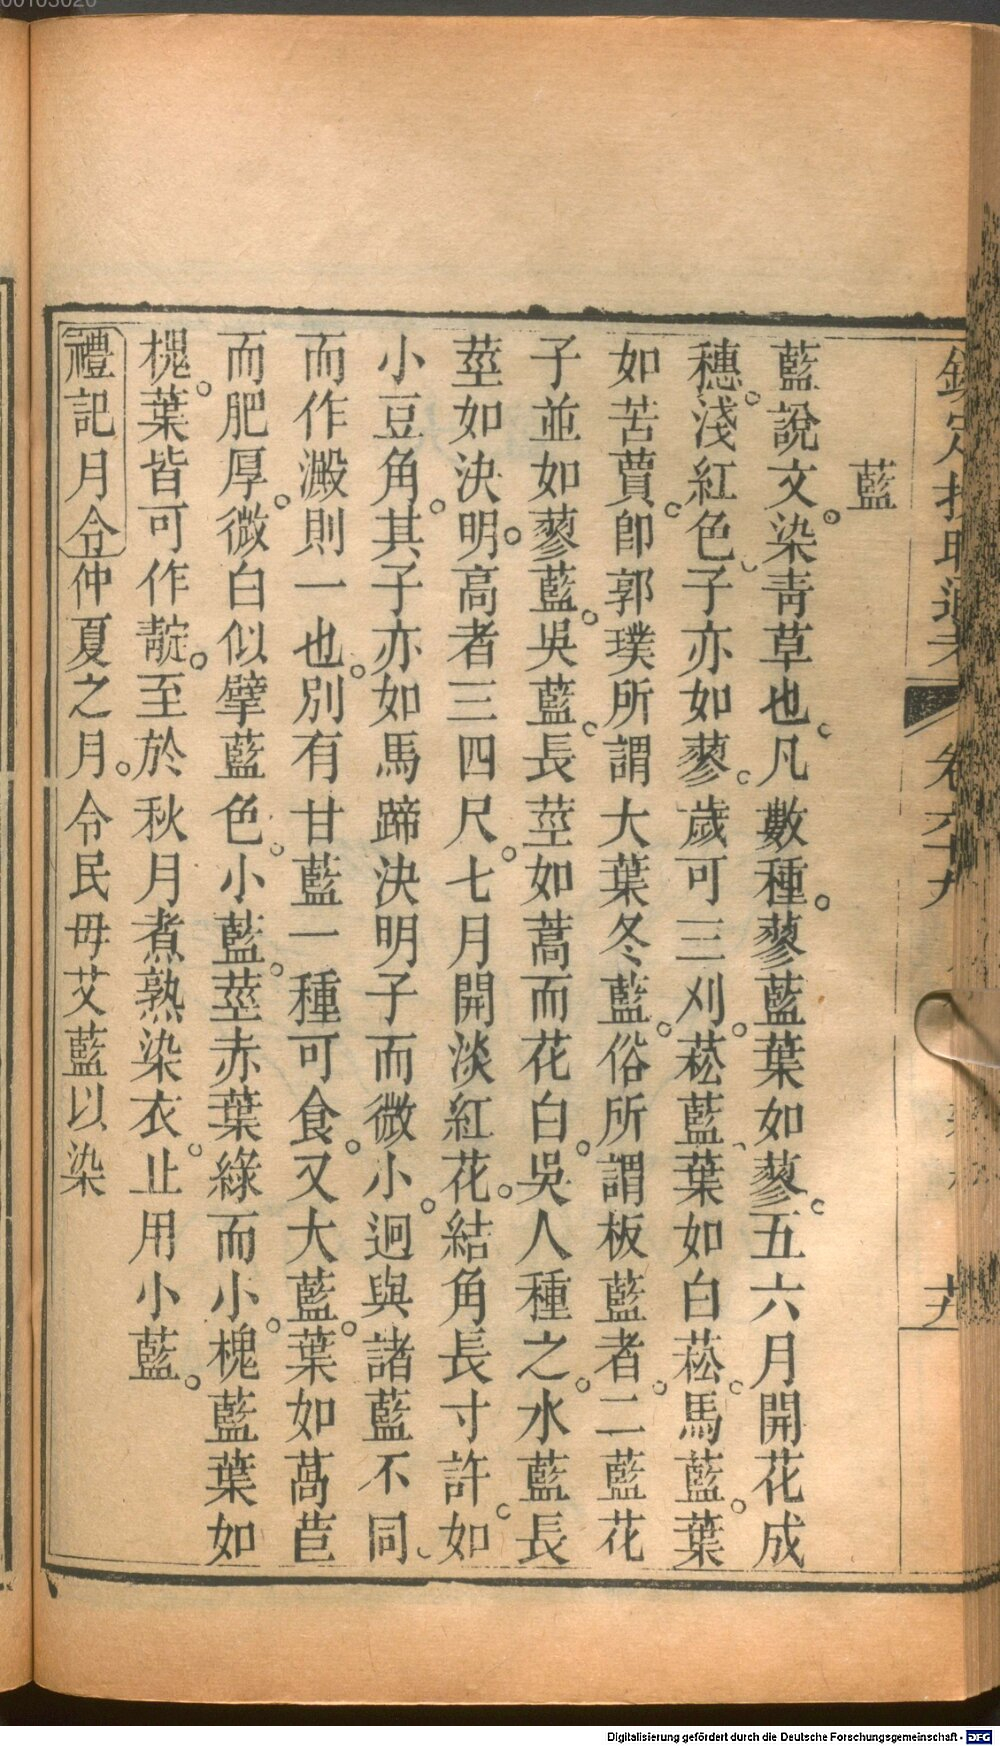 00103020
欽定授時通考
卷六十九
藍
藍說文染靑草也凡數種。蓼藍葉如蓼。五六月開花成
穗。淺紅色。子亦如蓼。歲可三刈。菘藍葉如白菘。馬藍。葉
如苦蕒。卽郭璞所謂大葉冬藍。俗所謂板藍者。二藍花
子並如蓼藍。吳藍。長莖如蒿而花白。吳人種之。水藍長
莖如決明。高者三四尺。七月開淡紅花。結角長寸許。如
小豆角。其子亦如馬蹄決明子而微小。迥與諸藍不同。
而作澱則一也。別有甘藍一種可食。又大藍。葉如萵苣
而肥厚。微白似擘藍色。小藍。莖赤葉綠而小。槐藍葉如
槐。葉皆可作靛。至於秋月煮熟染衣。止用小藍。
禮記月令仲夏之月。令民毋艾藍以染
Digitalisierung gefördert durch die Deutsche Forschungsgemeinschaft - DFG